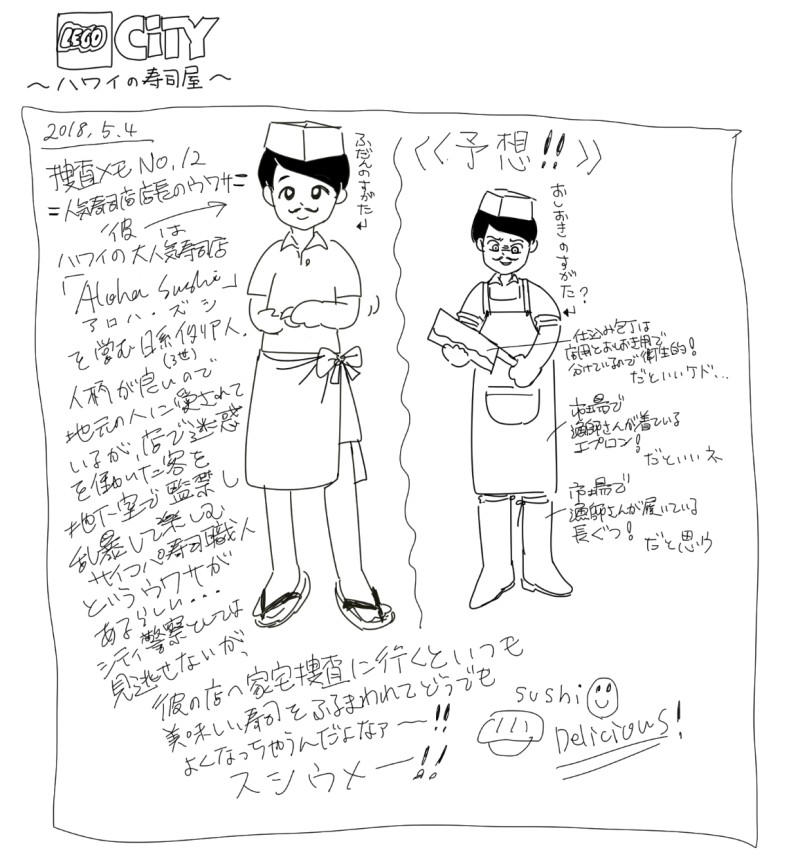 LEGO CITY
～ハワイの寿司屋～
2018.5.4
捜査メモ No.12
=人気寿司店店長のウワサ=
彼は
ハワイの大人気寿司店
「Aloha Sushi」
アロハ・ズシ
を営む日系イタリア人.
(3世)
人柄が良いので
地元の人に愛されて
いるが、店で迷惑
を働いた客を
地下室で監禁し
乱暴して楽しむ
サイコパ寿司職人
というウワサが
あるらしい...
シティ警察としては
見逃せないが、
彼の店へ家宅捜査に行くといつも
美味しい寿司をふるまわれてどうでも
よくなっちゃうんだよなァ〜!!
スシウメー!!
ふだんのすがた
《予想!!》
おしおきのすがた?
仕込み包丁は
店用とおしおき用で
分けているので衛生的!
だといいケド...
市場で
漁師さんが着ている
エプロン!
だといいネ
市場で
漁師さんが履いている
長ぐつ!
だと思ウ
sushi
Delicious!